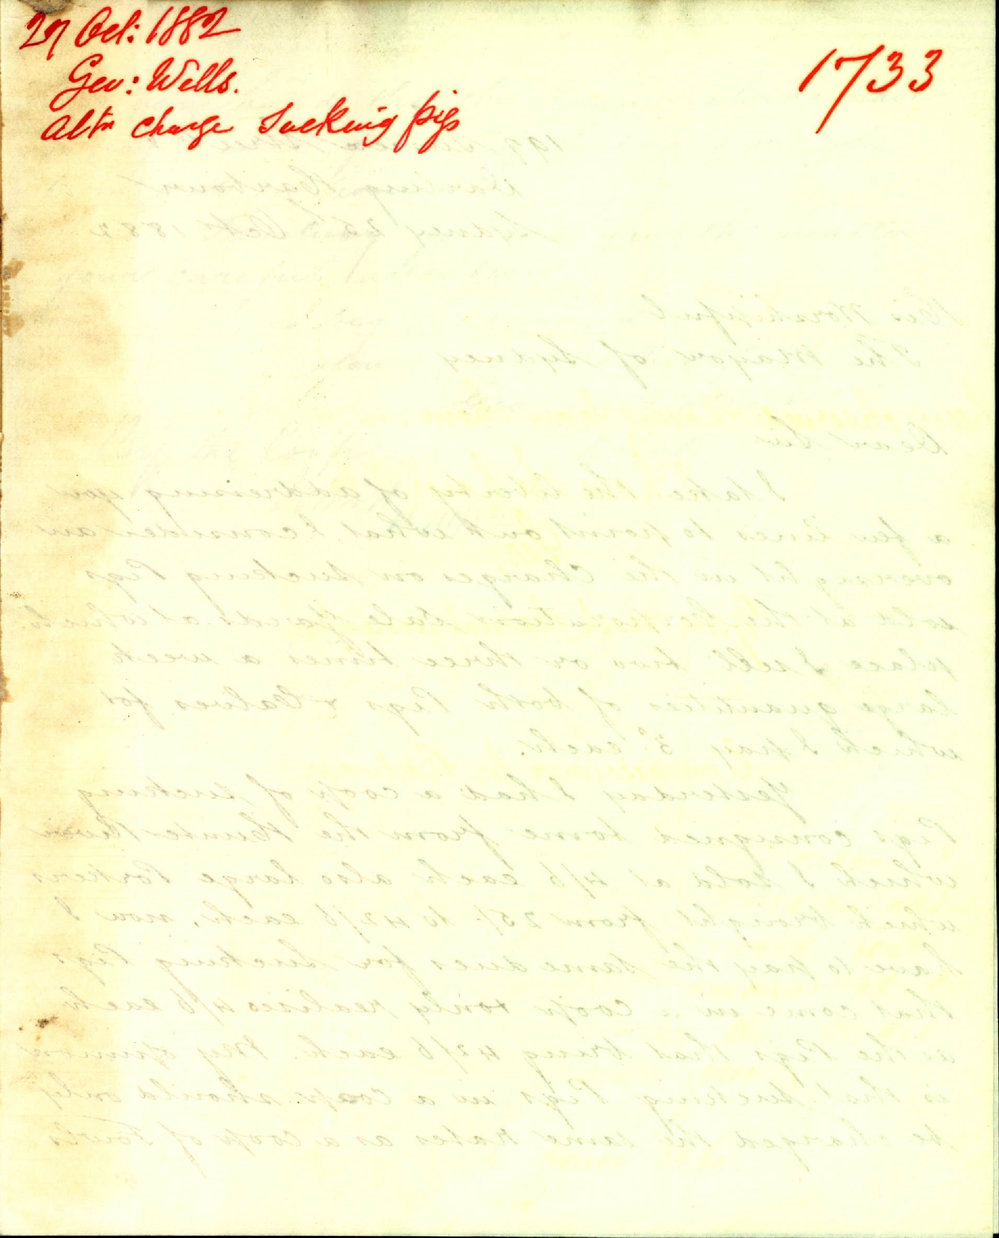 27 Oct: 1882
Geo: Wells.
Altn charge Sucking pigs
1733
Darling Harbour
Sydney 26th Oct 1882
His Worshipful
The Mayor of Sydney
Dear Sir
I take the liberty of addressing you
a few lines to point out what I consider an
oversight in the Charges on Sucking Pigs
sold at the Corporation Sale Yards at which
place I sell two or three times a week
large quantities of both Pigs & Calves for
which I pay 3d each.
Yesterday I had a coop of sucking
Pigs consigned to me from the Hunter River
which I sold at 4/6 each also large Porkers
which brought from 25/- to 42/6 each, now I
have to pay the same dues for sucking Pigs
that come in a coop & only realises 4/6 each
as the Pigs that bring 42/6 each. My opinion
is that sucking Pigs in a coop should only
be charged the same rates as a coop of Fowls